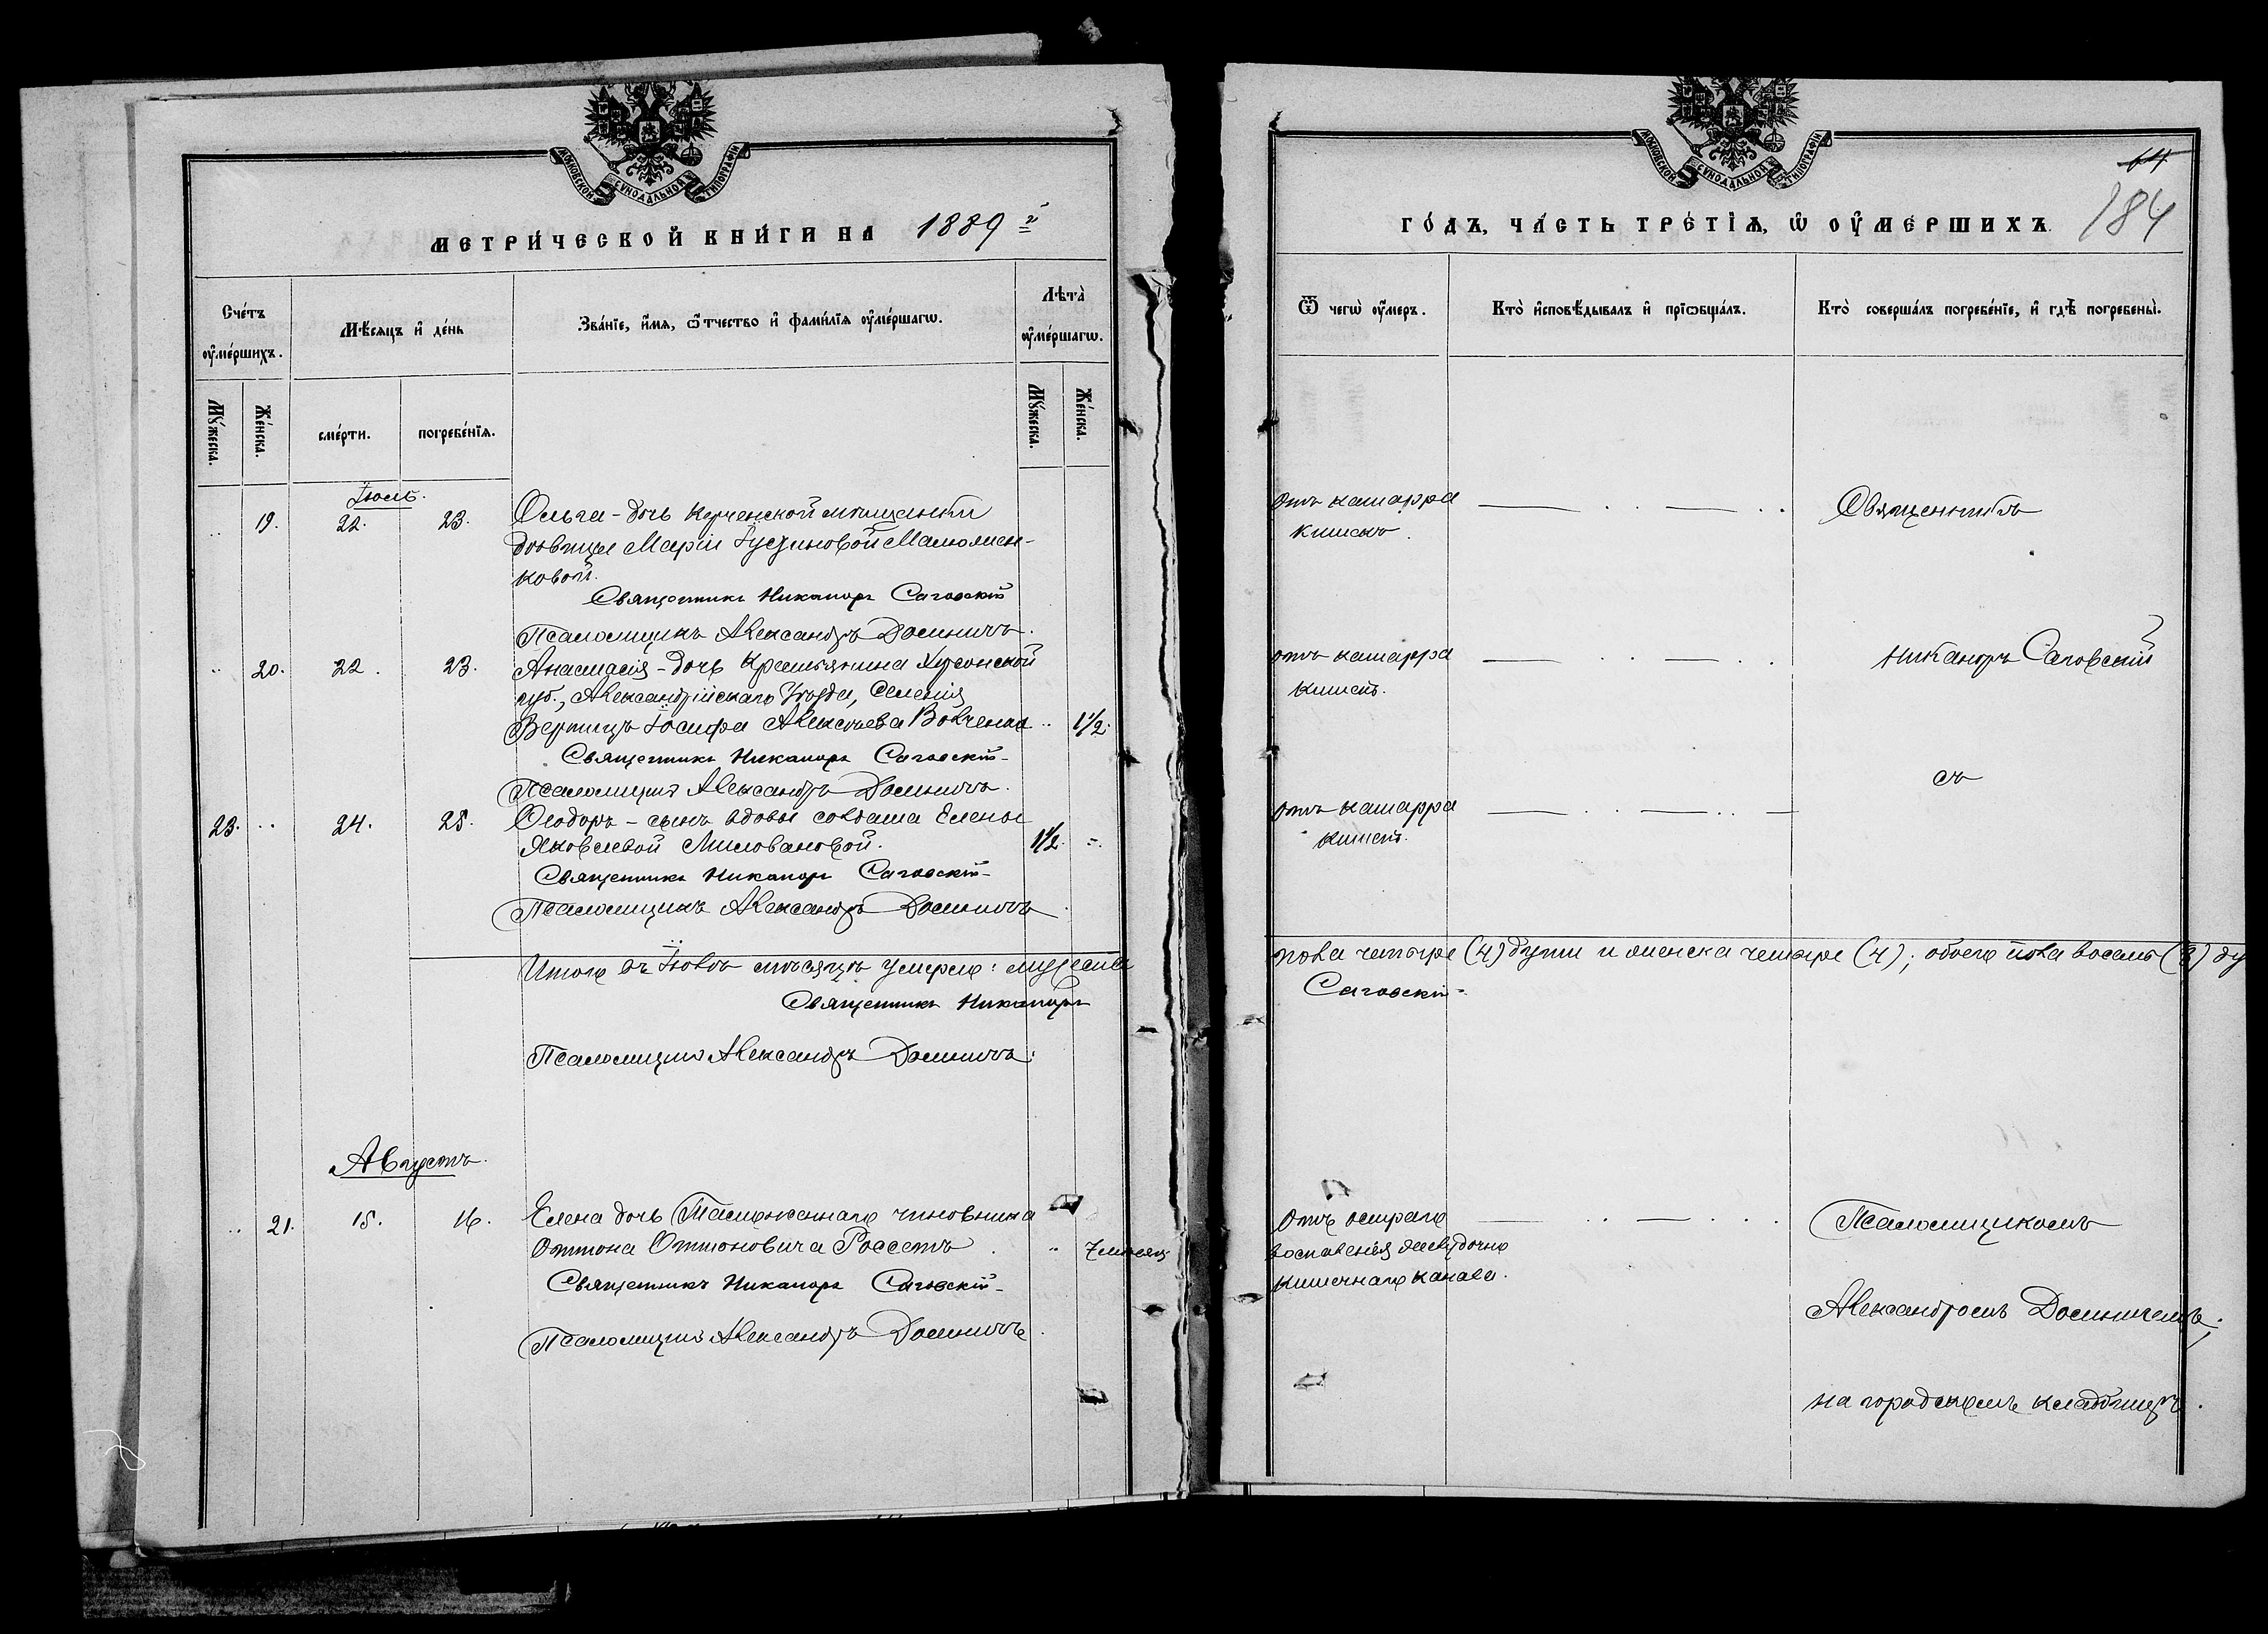 МОСКОВСКОЙ СУНОДАЛЬНОЙ ТИПОГРАФІИ
МЕТРИ́ЧЕСКОЙ КНИ́ГИ НА 1889 г
Сче́тъ ᲂу҆ме́ршихъ.
Мѣ́сяцъ и҆ де́нь
Зва́нїе, и҆́мя, ѻ҆́тчество и҆ фами́лїя ᲂу҆ме́ршагѡ.
Лѣта̀ ᲂу҆ме́ршагѡ.
Мꙋ́жеска.
Же́нска.
сме́рти.
погребе́нїя.
Мꙋ́жеска.
Же́нска.
Іюль.
.. 19. 22. 23. Ольга - дочь Керченской мѣщанки
дѣвицы Маріи Іустиновой
ковой.
Священникъ Никаноръ Саговскій
Псаломщикъ Александръ Доминичъ.
.. 20. 22. 23. Анастасія - дочь крестьянина Херсонской
губ., Александрійскаго Уѣзда, Селенія
Іосифа Алексѣева Вовченка .. 1½.
Священникъ Никаноръ Саговскій
Псаломщикъ Александръ Доминичъ.
23. .. 24. 25. Ѳеодоръ - сынъ вдовы солдата Елены
Яковлевой Миловановой. 1½. ..
Священникъ Никаноръ Саговскій
Псаломщикъ Александръ Доминичъ
Итого въ Іюлѣ мѣсяцѣ умерло: мужеска
Священникъ Никаноръ
Псаломщикъ Александръ Доминичъ.
Августъ.
.. 21. 15. 16. Елена дочь Таможеннаго чиновника
Оттона Оттоновича Россетъ. .. 7 мѣсяц.
Священникъ Никаноръ Саговскій
Псаломщикъ Александръ Доминичъ.
МОСКОВСКОЙ СУНОДАЛЬНОЙ ТИПОГРАФІИ
64
184
ГО́ДЪ, ЧА́СТЬ ТРЕ́ТЇѦ, Ѡ҆ ᲂУ҆МЕ́РШИХЪ.
Ѿ чегѡ̀ ᲂу҆́меръ.
Кто̀ и҆сповѣ́дывалъ и҆ прїѡбща́лъ.
Кто̀ соверша́лъ погребе́нїе, и҆ гдѣ̀ погребены̀.
отъ катарра
кишекъ.
Священникъ
отъ катарра
кишекъ.
Никаноръ Саговскій
съ
отъ катарра
кишекъ.
пола четыре (4) души и женска четыре (4); обоего пола восемь (8) ду
Саговскій
Отъ остраго
воспаленія желудочно
кишечнаго канала.
Псаломщикомъ
Александромъ Доминичемъ,
на городскомъ кладбищѣ.